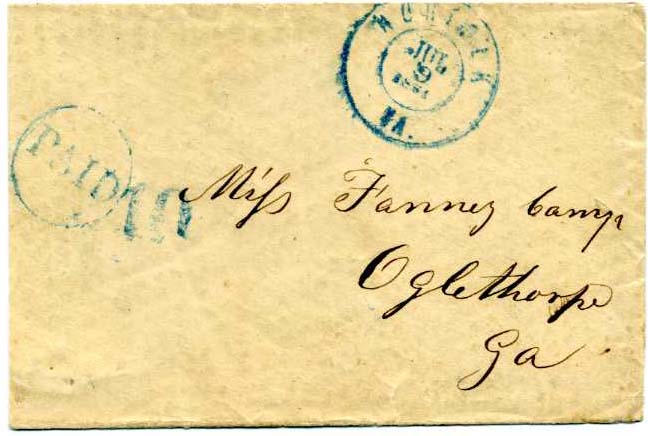 NORFOLK
JUL
9
1861
VA.
PAID
10
Miss Fanney Camp
Oglethorpe
Ga